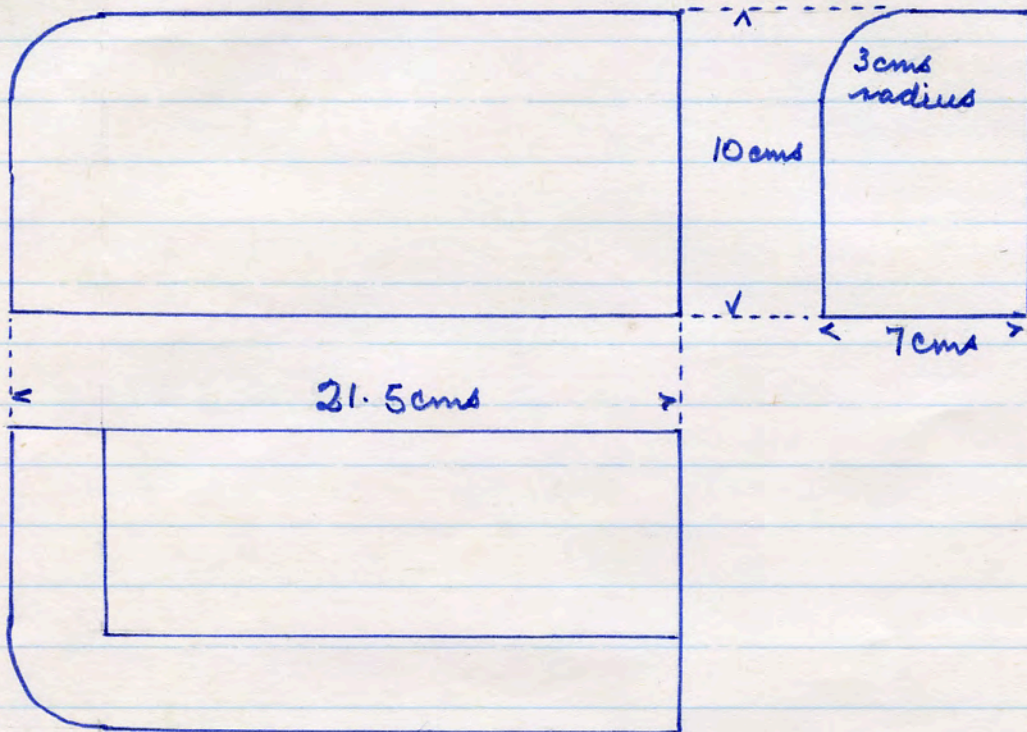 3cms
radius
10cms
7cms
21.5cms